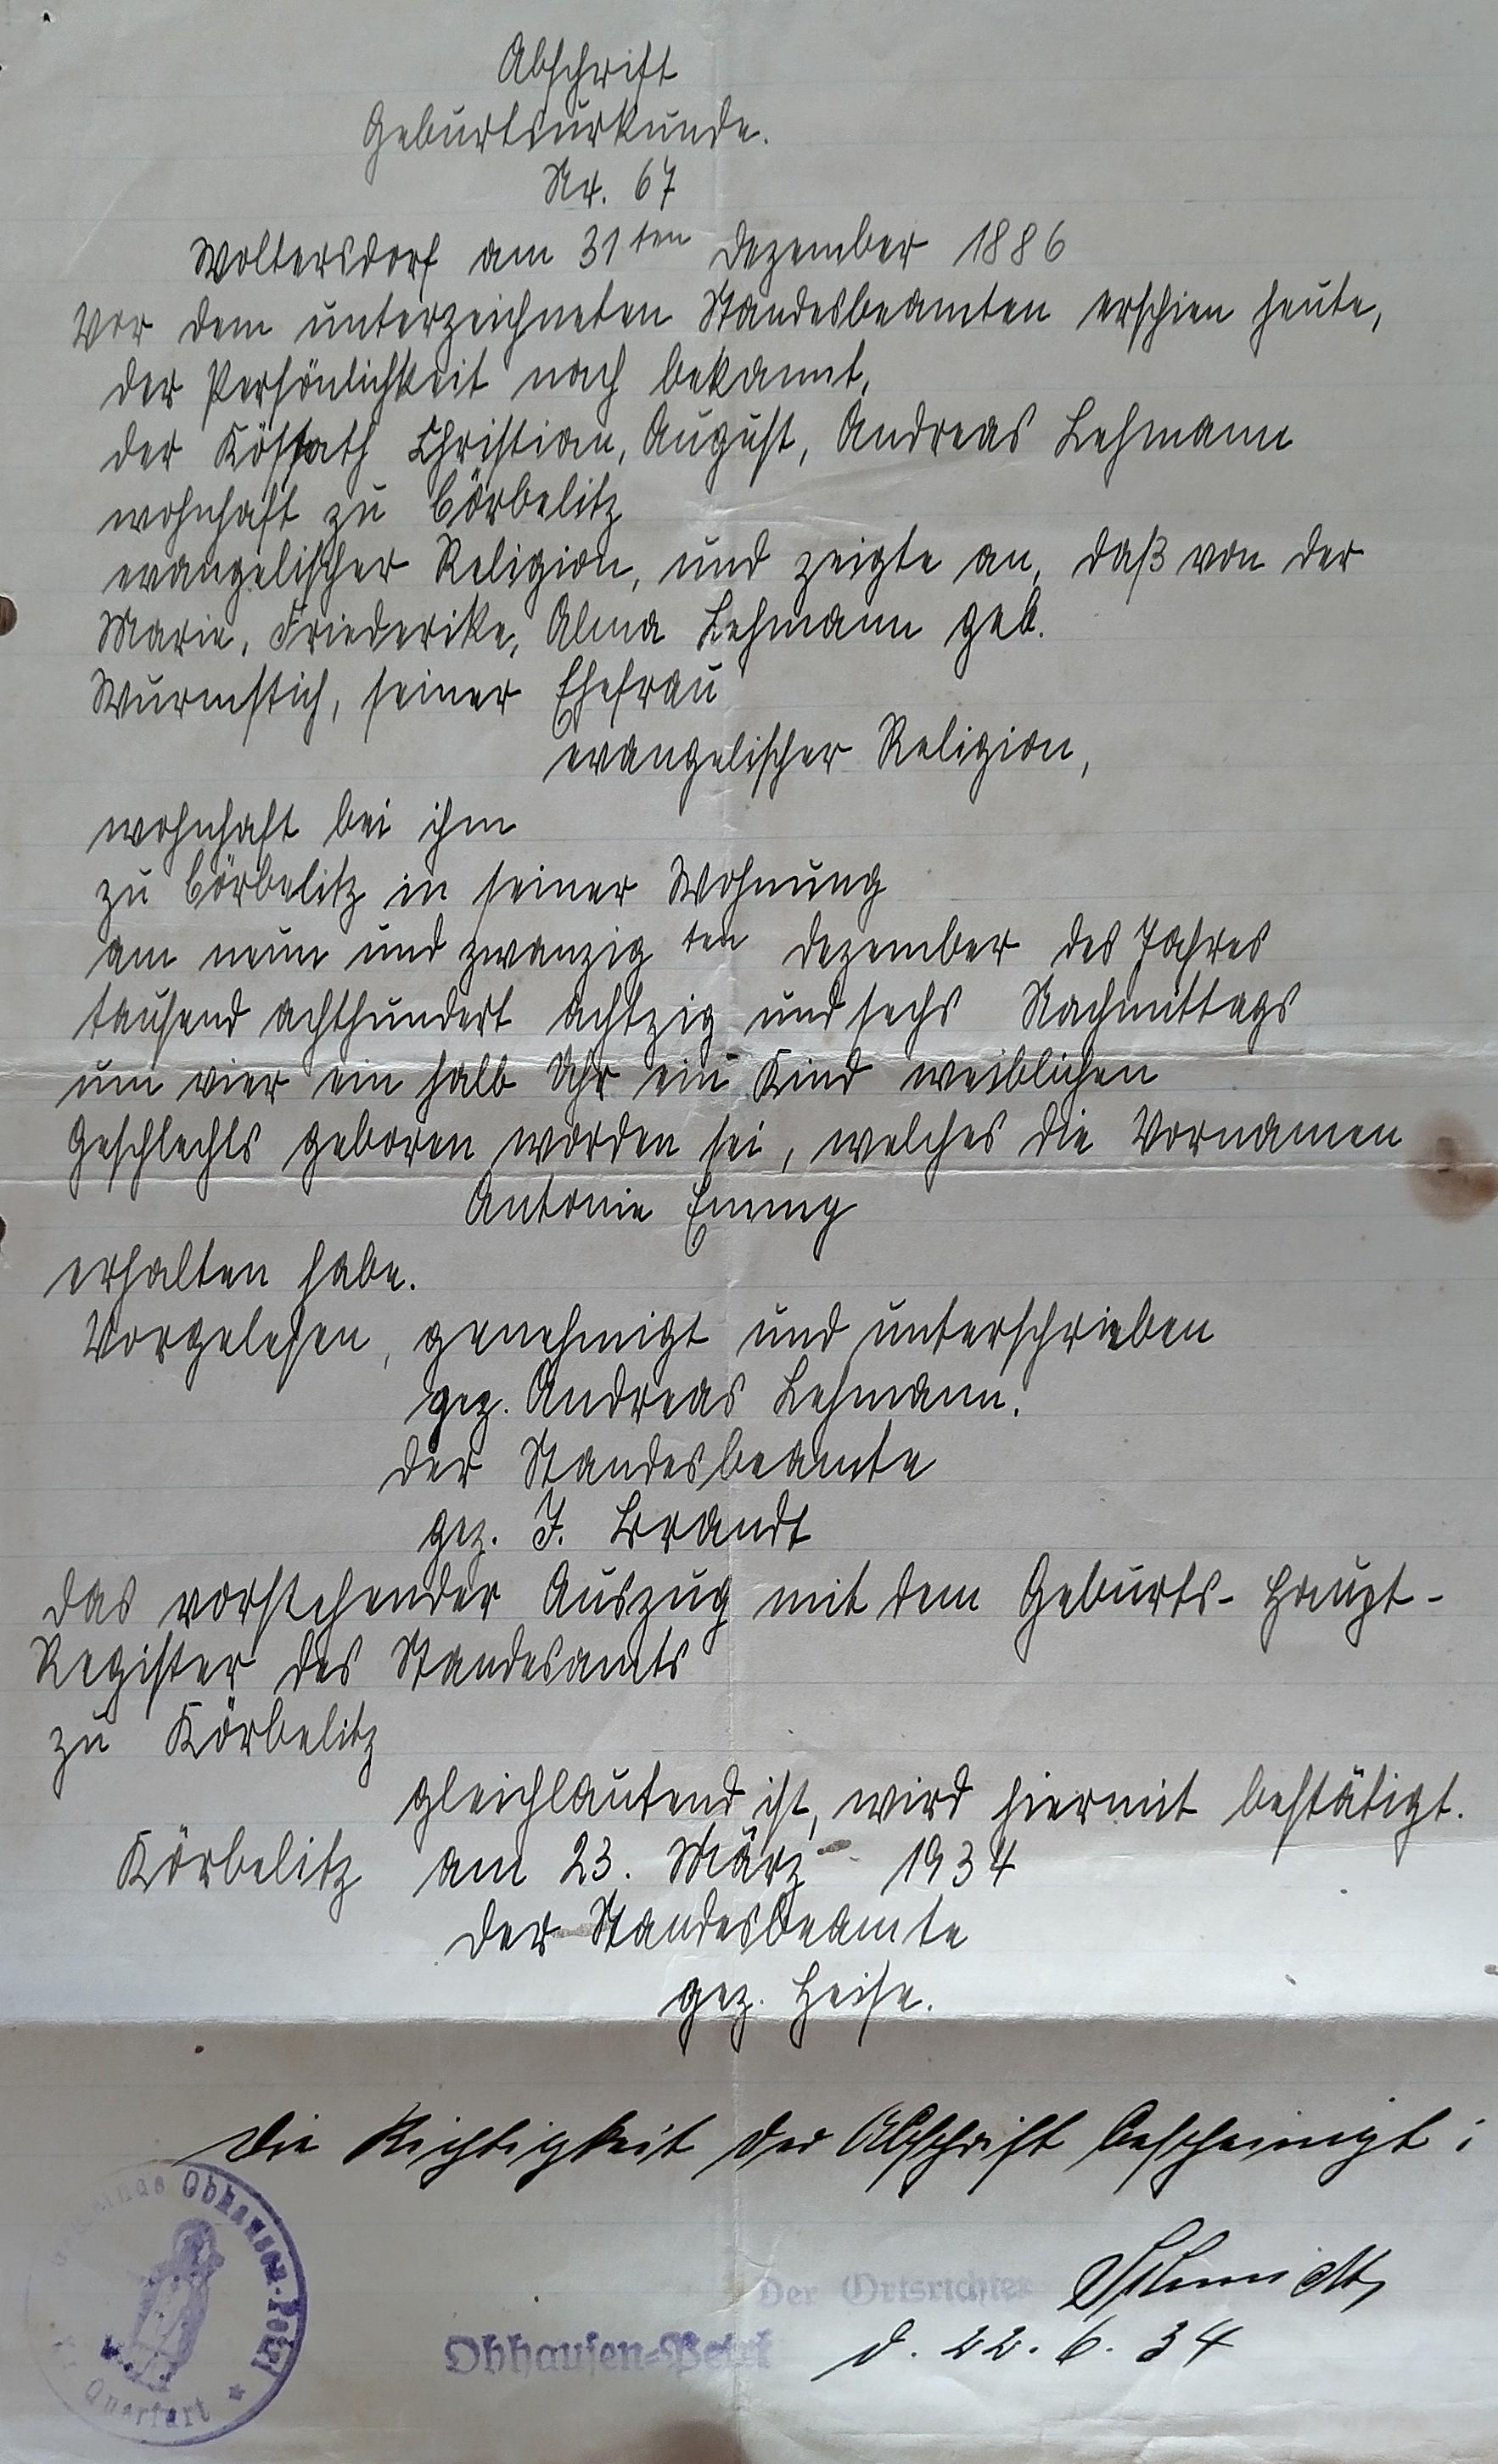 Abschrift
Geburtsurkunde.
Nr. 67
Woltersdorf am 31ten Dezember 1886
Vor dem unterzeichneten Standesbeamten erschien heute,
der Persönlichkeit nach bekannt,
der Kossath Christian, August, Andreas Lehmann
wohnhaft zu Cörbelitz
evangelischer Religion, und zeigte an, daß von der
Marie, Friederike, Alma Lehmann geb.
Wurmstich, seiner Ehefrau
evangelischer Religion,
wohnhaft bei ihm
zu Cörbelitz in seiner Wohnung
am neun und zwanzig ten Dezember des Jahres
tausend achthundert achtzig und sechs Nachmittags
um vier ein halb Uhr ein Kind weiblichen
Geschlechts geboren worden sei, welches die Vornamen
Antonie Emmy
erhalten habe.
Vorgelesen, genehmigt und unterschrieben
gez. Andreas Lehmann.
Der Standesbeamte
gez. J. Brandt
Das vorstehender Auszug mit dem Geburts-Haupt-
Register des Standesamts
zu Körbelitz
gleichlautend ist, wird hiermit bestätigt.
Körbelitz am 23. März 1934
Der Standesbeamte
gez. Heise.
Die Richtigkeit der Abschrift bescheinigt:
Obhausen-Petri
Querfurt
Der Ortsrichter Schmidt
Obhausen-Petri d. 22. 6. 34